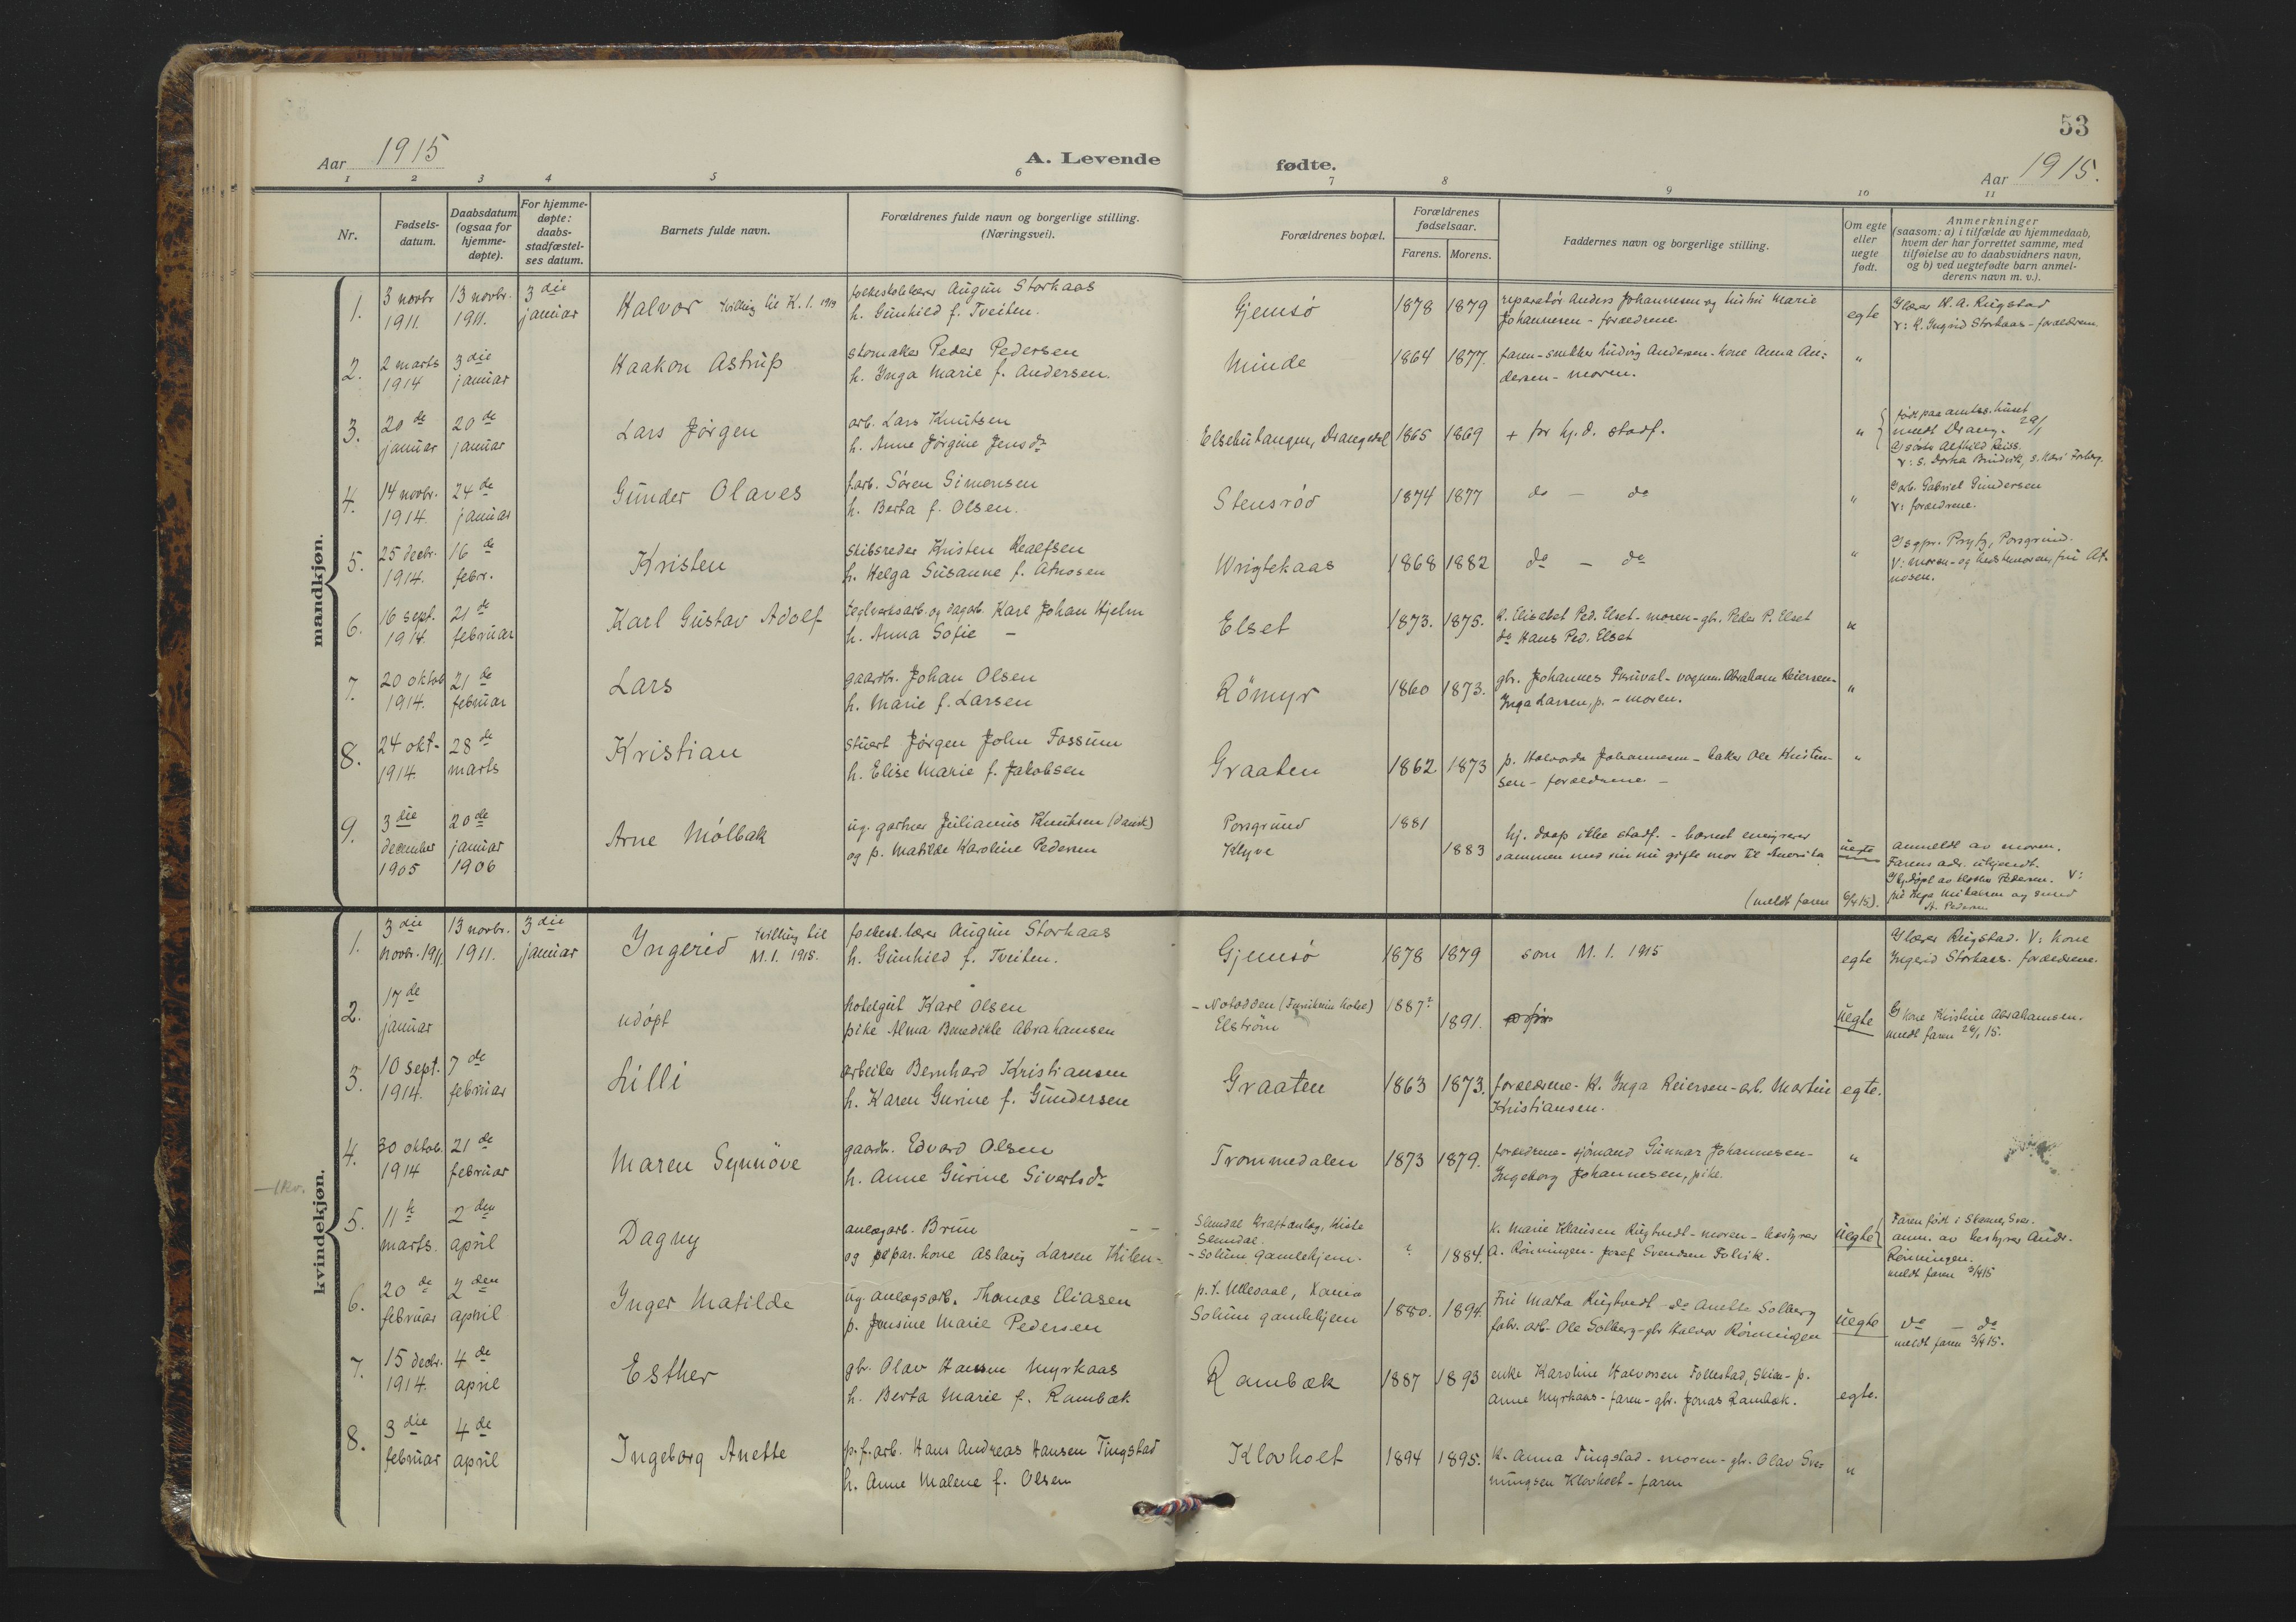 53
Aar 1915
A. Levende fødte.
Aar 1915.
1 2 3 4 5 6 7 8 9 10 11
Nr.
Fødsels-
datum.
Daabsdatum
(ogsaa for
hjemme-
døpte).
For hjemme-
døpte:
daabs-
stadfæstel-
ses datum.
Barnets fulde navn.
Forældrenes fulde navn og borgerlige stilling.
(Næringsvei).
Forældrenes bopæl.
Forældrenes
fødselsaar.
Farens. Morens.
Faddernes navn og borgerlige stilling.
Om egte
eller
uegte
født.
Anmerkninger
(saasom: a) i tilfælde av hjemmedaab,
hvem der har forrettet samme, med
tilføielse av to daabsvidners navn,
og b) ved uegtefødte barn anmel-
derens navn m. v.).
mandkjøn.
1. 3 novbr 1911. 13 novbr. 1911. 3die januar
Halvor tvilling til K. 1. 1915
folkeskolelærer Augun Storkaas
h. Gunhild f. Tveiten.
Gjemsø 1878 1879
reparatør Anders Johannesen og hustru Marie
Johannesen - forældrene.
egte
lærer N. A. Rugstad
V: K. Ingrid Storkaas - forældrene
2. 2 marts 1914 3die januar
Haakon Astrup
skomaker Peder Pedersen
h. Inga Marie f. Andersen.
Minde 1864 1877.
faren - snekker Ludvig Andersen - kone Anna An-
dersen - moren.
"
3. 20de januar 20de januar
Lars Jørgen
arb. Lars Knutsen
h. Anne Jørgine Jensdr
Drangedal 1865 1869
+ før hj. d. stadf.
"
født paa amtss.huset
meldt Drang. 29/1
4. 14 novbr. 1914. 24de januar
Gunder Olaves
f.arb. Søren Simonsen
h. Berta f. Olsen.
Stensrød 1874 1877
do - do
"
arb. Gabriel Gundersen
V: forældrene.
5. 25 decbr. 1914. 16de febr.
Kristen
skibsreder Kristen Realfsen
h. Helga Susanne f. Atnosen
Wrigtekaas 1868 1882
do - do
"
sgpr. Pryts, Porsgrund.
V: moren - og bedstemoren, fru At-
nosen.
6. 16 sept. 1914. 21de februar
Karl Gustav Adolf
teglverksarb. og dagarb. Karl Johan Hjelm
h. Anna Sofie -
Elset 1873. 1875.
K. Elisabet Ped. Elset - moren - gb. Peder P. Elset
do Hans Ped. Elset
"
7. 20 oktob 1914. 21de februar
Lars
gaardbr. Johan Olsen
h. Marie f. Larsen
Römyr 1860 1873.
gbr. Johannes - vognm. Abraham Reiersen -
Inga Larsen, p. - moren.
"
8. 24 okt- 1914. 28de marts
Kristian
stuert Jørgen John Fossum
h. Elise Marie f. Jakobsen
Graaten 1862 1873
p. Halvorda Johannesen - baker Ole Kristen-
sen - forældrene -
"
9. 3die december 1905 20de januar 1906
Arne Mølbak
ug. gartner Julianus Knutsen (dansk)
og p. Matilde Karoline Pedersen
Porsgrund 1881
Klyve 1883
hj. daap ikke stadf. - barnet emigrerer
sammen med sin nu gifte mor til Amerika
(meldt faren 9/4 15).
uegte
anmeldt av moren.
Farens adr. ukjendt.
Pedersen. V:
og smed
A. Pedersen
kvindekjøn.
1. 3die novbr. 1911. 13 novbr. 1911. 3die januar
Ingerid tvilling til
M. 1. 1915.
folkesk.lærer Augun Storkaas
h. Gunhild f. Tveiten.
Gjemsø 1878 1879
som M. 1. 1915
egte
lærer Rugstad. V: kone
Ingerid Storkaas. forældrene.
2. 17de januar
udøpt
hotelgut Karl Olsen
pike Alma Benedikte Abrahamsen
- Notodden 1887?
Elstrøm 1891.
uegte
kone Kristine Abrahamsen.
meldt faren 29/1 15.
3. 10 sept. 1914. 7de februar
Lilli
arbeider Bernhard Kristiansen
h. Karen Gurine f. Gundersen
Graaten 1863 1873.
forældrene - K. Inga Reiersen - arb. Martin
Kristiansen.
egte.
4. 30 oktob. 1914 21de februar
Maren Synnöve
gaardbr. Edvard Olsen
h. Anne Gurine Sivertsdr
Trommedalen 1873 1879.
forældrene - sjømand Gunnar Johannesen -
Ingeborg Johannesen, pike.
"
- 1 kv.
5. 11te marts. 2den april
Dagny
anlægsarb. Brun - -
og separ. kone Aslaug Larsen Kilen -
Slemdal Kraftanlæg, Kiste
Slemdal.
- Solum gamlehjem. ? 1884.
K. Marie Klausen Rugtvedt - moren - bestyrer
A. Rønningen - Josef Svendsen Folvik.
uegte
Faren født i Skaane, Sver.
anm. av bestyrer Andr.
Rønningen.
meldt faren 3/4 15
6. 20de februar 2den april
Inger Matilde
ug. anlægsarb. Thomas Eliasen
p. Jensine Marie Pedersen
p. t. Ullevaal, Kania
Solum gamlehjem 1880. 1894.
Fru Marta Rugtvedt - do Anette Solberg
fabr. arb. Ole Solberg - gbr Halvor Rønningen
uegte
do - do
meldt faren 3/4 15.
7. 15 decbr. 1914. 4de april
Esther
gbr. Olav Hansen Myrkaas
h. Berta Marie f. Rambæk
Rambæk 1887 1893
enke Karoline Halvorsen Follestad, Skien - p.
Anne Myrkaas - faren - gbr. Jonas Rambæk.
egte.
8. 3die februar 4de april
Ingeborg Anette
p.f.arb. Hans Andreas Hansen Tingstad
h. Anne Malene f. Olsen
Klovholt 1894 1895.
K. Anna Tingstad - moren - gbr. Olav Sve-
nungsen Klovholt - faren
"